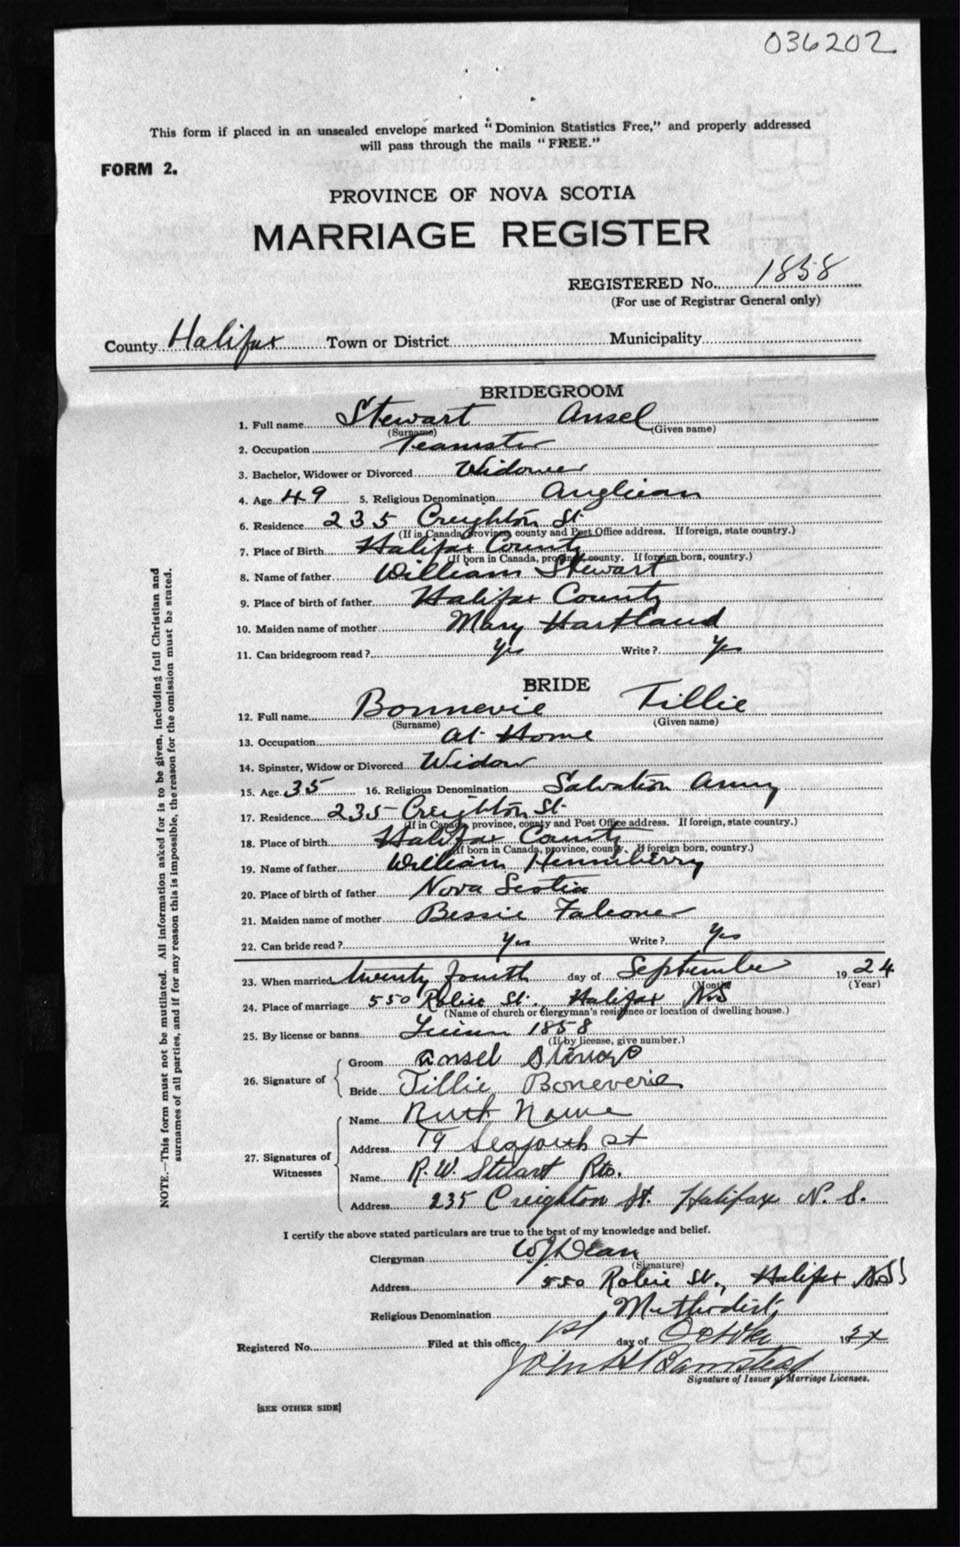 036202
This form if placed in an unsealed envelope marked "Dominion Statistics Free," and properly addressed
will pass through the mails "FREE."
FORM 2.
PROVINCE OF NOVA SCOTIA
MARRIAGE REGISTER
REGISTERED No. 1858
(For use of Registrar General only)
County Halifax Town or District Municipality
BRIDEGROOM
1. Full name Stewart Ansel
(Surname) (Given name)
2. Occupation Teamster
3. Bachelor, Widower or Divorced Widower
4. Age 49 5. Religious Denomination Anglican
6. Residence 235 Creighton St.
(If in Canada, province county and Post Office address. If foreign, state country.)
7. Place of Birth Halifax County
(If born in Canada, province, county. If foreign born, country.)
8. Name of father William Stewart
9. Place of birth of father Halifax County
10. Maiden name of mother Mary Hartland
11. Can bridegroom read? Yes Write? Yes
BRIDE
12. Full name Bonnevie Tillie
(Surname) (Given name)
13. Occupation At Home
14. Spinster, Widow or Divorced Widow
15. Age 35 16. Religious Denomination Salvation Army
17. Residence 235 Creighton St.
(If in Canada, province, county and Post Office address. If foreign, state country.)
18. Place of birth Halifax County
(If born in Canada, province, county. If foreign born, country.)
19. Name of father William Henneberry
20. Place of birth of father Nova Scotia
21. Maiden name of mother Bessie Falconer
22. Can bride read? Yes Write? Yes
23. When married twenty fourth day of September 1924
(Month) (Year)
24. Place of marriage 550 Robie St. Halifax NS
(Name of church or clergyman's residence or location of dwelling house.)
25. By license or banns 1858
(If by license, give number.)
26. Signature of
Groom Ansel
Bride Tillie Boneverie
27. Signatures of Witnesses
Name Ruth
Address 79 Seaforth St
Name R. W. Stewart
Address 235 Creighton St. Halifax N. S.
I certify the above stated particulars are true to the best of my knowledge and belief.
Clergyman WJ Dean
(Signature)
Address 550 Robie St., Halifax NS
Religious Denomination Methodist
Registered No. Filed at this office 1st day of October 1924
John H Barnstead
Signature of Issuer of Marriage Licenses.
[SEE OTHER SIDE]
NOTE.—This form must not be mutilated. All information asked for is to be given, including full Christian and
surnames of all parties, and if for any reason this is impossible, the reason for the omission must be stated.